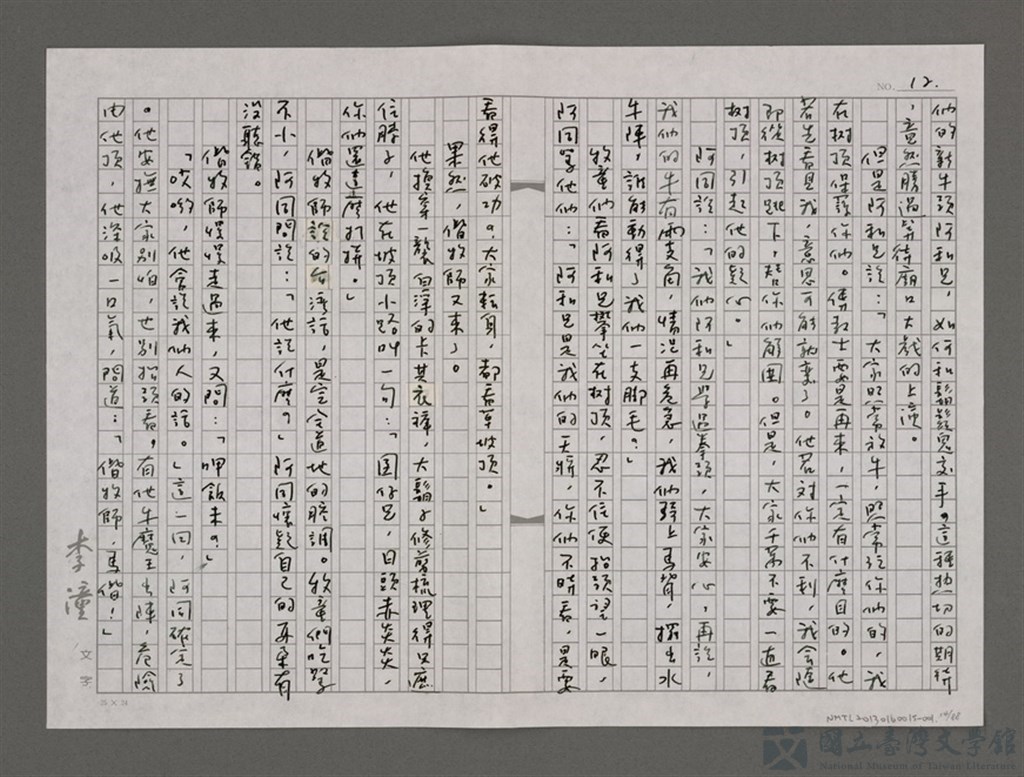 NO. 12.
們的新牛頭阿和兄，如何和鬍鬚鬼交手。這種熱切的期待
，竟然勝過等待廟口大戲的上演。
但是阿和兄說：「大家照常放牛，照常玩你們的，我
在樹頂保護你們。傅教士要是再來，一定有什麼目的。他
若先看見我，意思可能就變了。他若對你們不利，我會隨
即從樹頂跳下，替你們解圍。但是，大家千萬不要一直看
樹頂，引起他的疑心。」
阿同說：「我們阿和兄學過拳頭，大家安心，再說，
我們的牛有兩支角，情況再危急，我們騎上馬背，擺出水
牛陣，誰能動得了我們一支腳毛？」
牧童們看阿和兄攀坐在樹頂，忍不住便抬頭望一眼，
阿同罵他們：「阿和兄是我們的天將，你們不時看，是要
看得他破功？大家轉身，都看草坡頂。」
果然，偕牧師又來了。
他換穿一襲白淨的卡其衣褲，大鬍子修剪梳理得只遮
住脖子，他在坡頂小路叫一句：「囝仔兄，日頭赤炎炎，
你們還這麼打拼。」
偕牧師說的台灣話，是完完全全道地的腔調。牧童們吃驚
不小，阿同問說：「他說什麼？」阿同懷疑自己的耳朵有
沒聽錯。
偕牧師慢慢走過來，又問：「呷飯未？」
「哎喲，他會說我們人的話。」這一回，阿同確定了
。他安撫大家別怕，也別抬頭看，有他牛魔王出陣，危險
由他頂，他深吸一口氣，問道：「偕牧師，馬偕！」
李潼 文字
25 × 24
NMTL20130160015-004
國立臺灣文學館
National Museum of Taiwan Literature